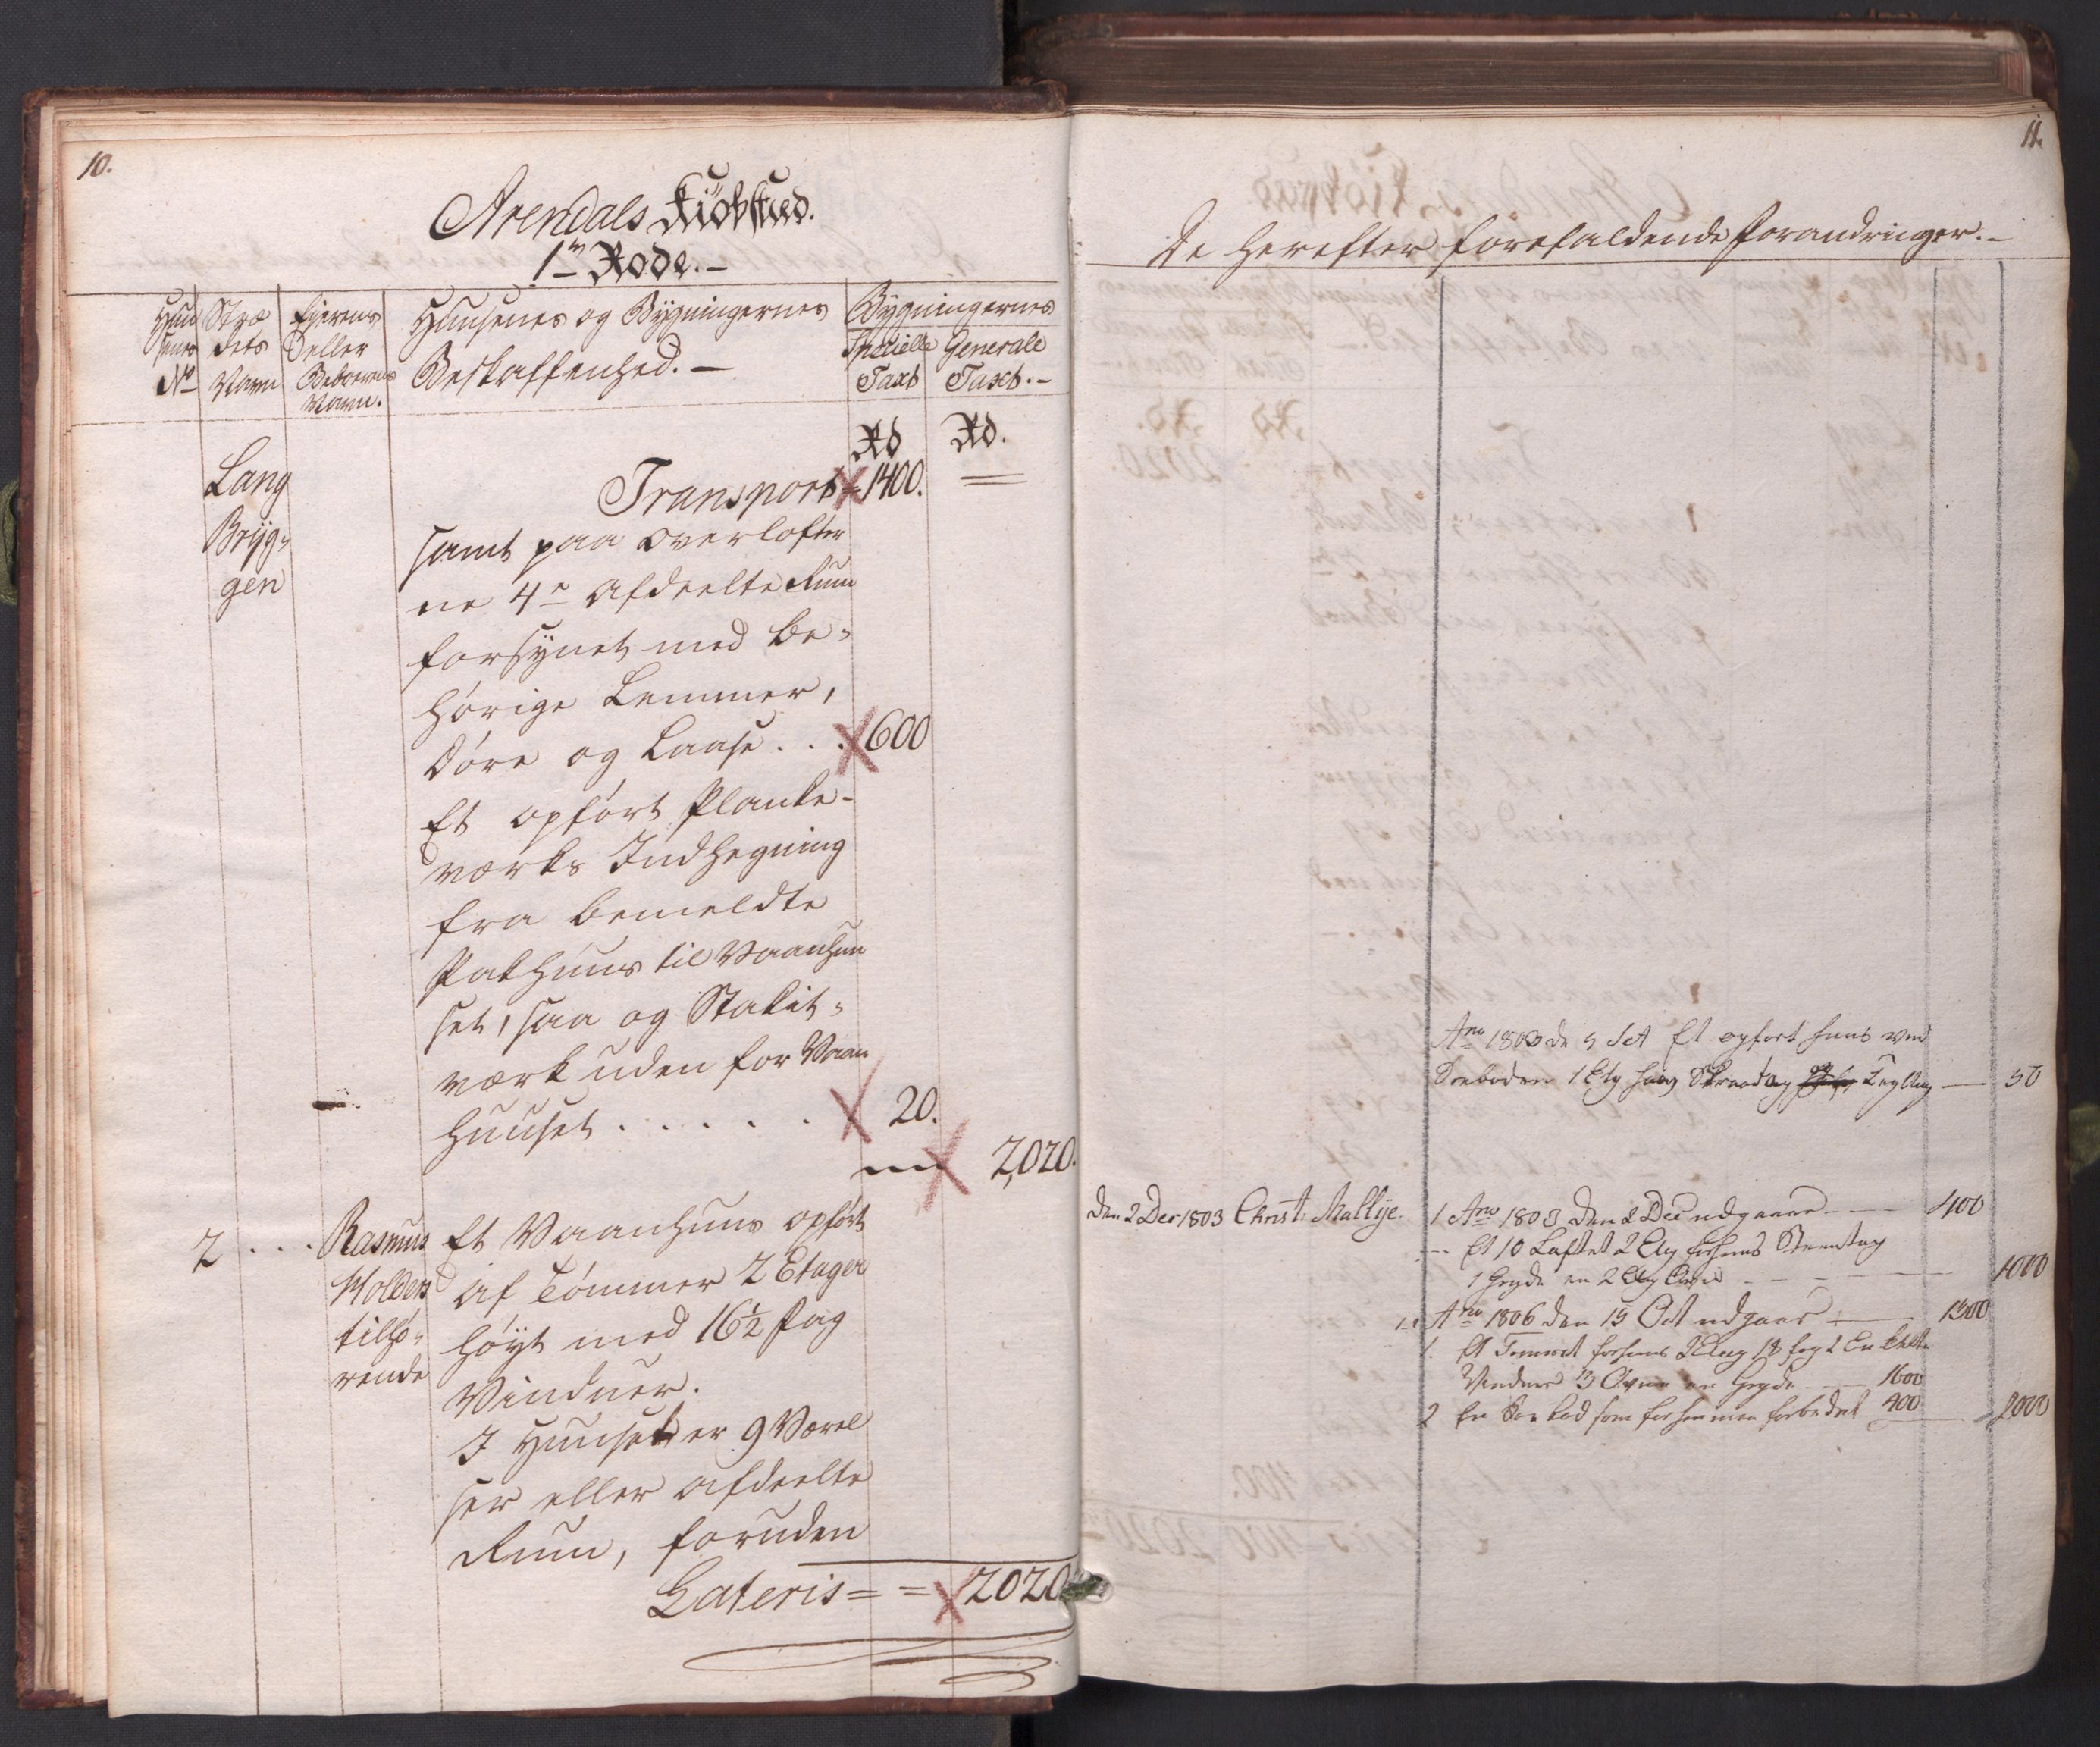 10.
Arendals Kiöbstæd.
1te Rode.
Huu
senes
No
Stræ
dets
Navn
Ejerens
eller
Beboerens
Navn.
Huusenes og Bÿgningernes
Beskaffenhed.
Bÿgningernes
Specielle Taxt
Generale Taxt.
Rd Rd.
Lang
Brÿg-
gen
Transport 1400.
samt paa Overlofter
ne 4re afdeelte Rum
forsÿnet med be-
hörige Lemmer,
Döre og Laase . . . 600
Et opfört Planke-
værks Indhegning
fra bemeldte
Pakhuus til Vaanhuu
set, saa og Stakit-
værk uden for Vaan
Huuset . . . . . 20.
2,020.
2 . . . Rasmus
Molden
tilhö-
rende
Et Vaanhuus opfört
af Tömmer 2 Etager
höyt med 16½ Fag
Vinduer.
I Huuset er 9 Værel
ser eller afdeelte
Rum, foruden
Lateris = = 2020
11.
De herefter forefaldende Forandringer.
Ano 1803 de 5 Oct Et opfört huus ved
Soeboden 1 Etg og 50
den 2 Dec 1803 Christ: Mallije.
1 Ano 1803 den 2 Dec udgaaer 400
Et 10 Laftet 2 Etg Steentag
1 Gryde en 2 Etg 1000
Ano 1806 den 15 Oct udgaar 1300
1. Et Tömret 2 Etag 18 fag
Vinduer 3 Ovne en Gryde 1600
2 En Soe bod som forhen men forbedret 400 2000